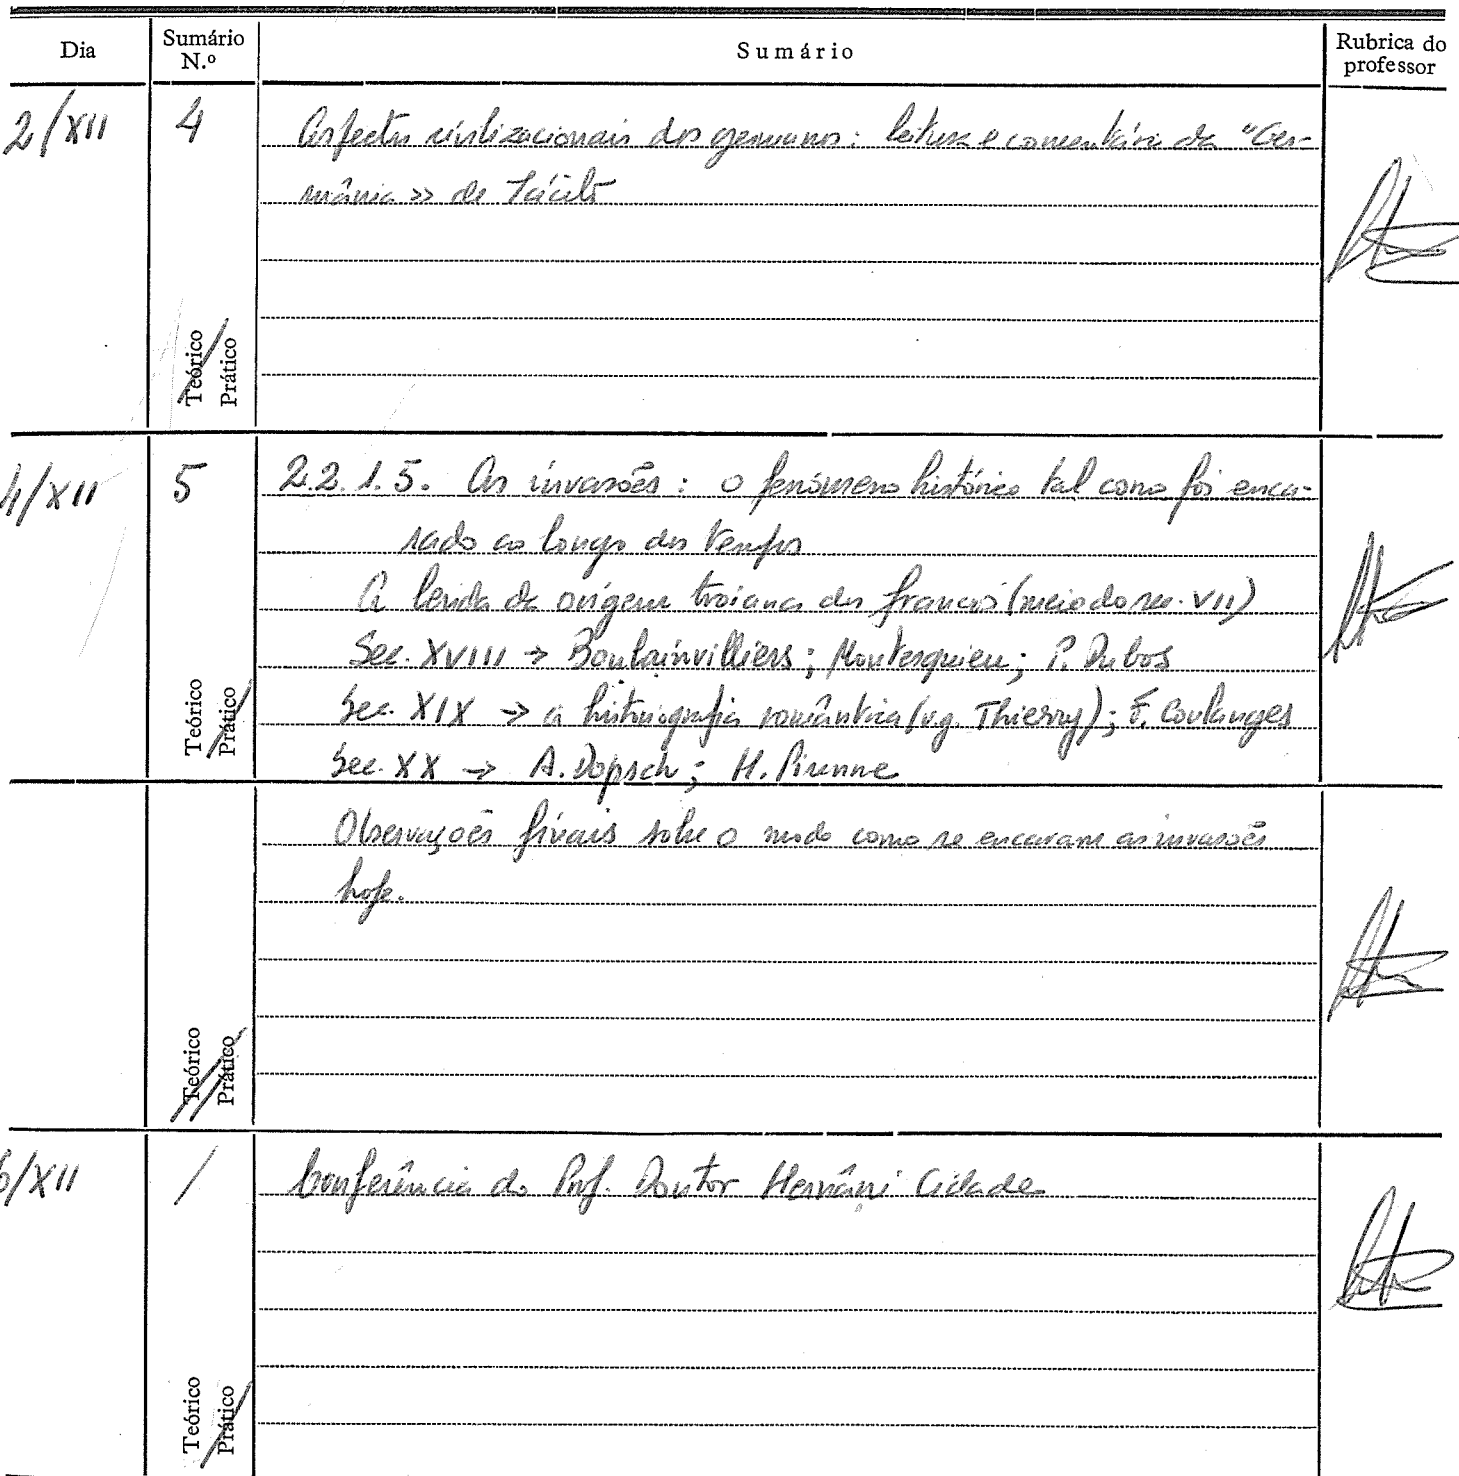 Dia
Sumário N.º
Sumário
Rubrica do professor
2/XII
4
Aspectos civilizacionais dos germanos: leitura e comentário da "Ger-
mânia» de Tácito
Teórico
Prático
4/XII
5
2.2.1.5. As invasões: o fenómeno histórico tal como foi enca-
rado ao longo dos tempos
A lenda da origem troiana dos francos (meio do sec. VII)
Sec. XVIII → Boulainvilliers; Montesquieu; P. Dubos
Sec. XIX → a historiografia romântica (v.g. Thierry); F. Coulanges
Sec. XX → A. Dopsch; H. Pirenne
Teórico
Prático
Observações finais sobre o modo como se encaram as invasões
hoje.
Teórico
Prático
6/XII
/
Conferência do Prof. Doutor Hernâni Cidade
Teórico
Prático